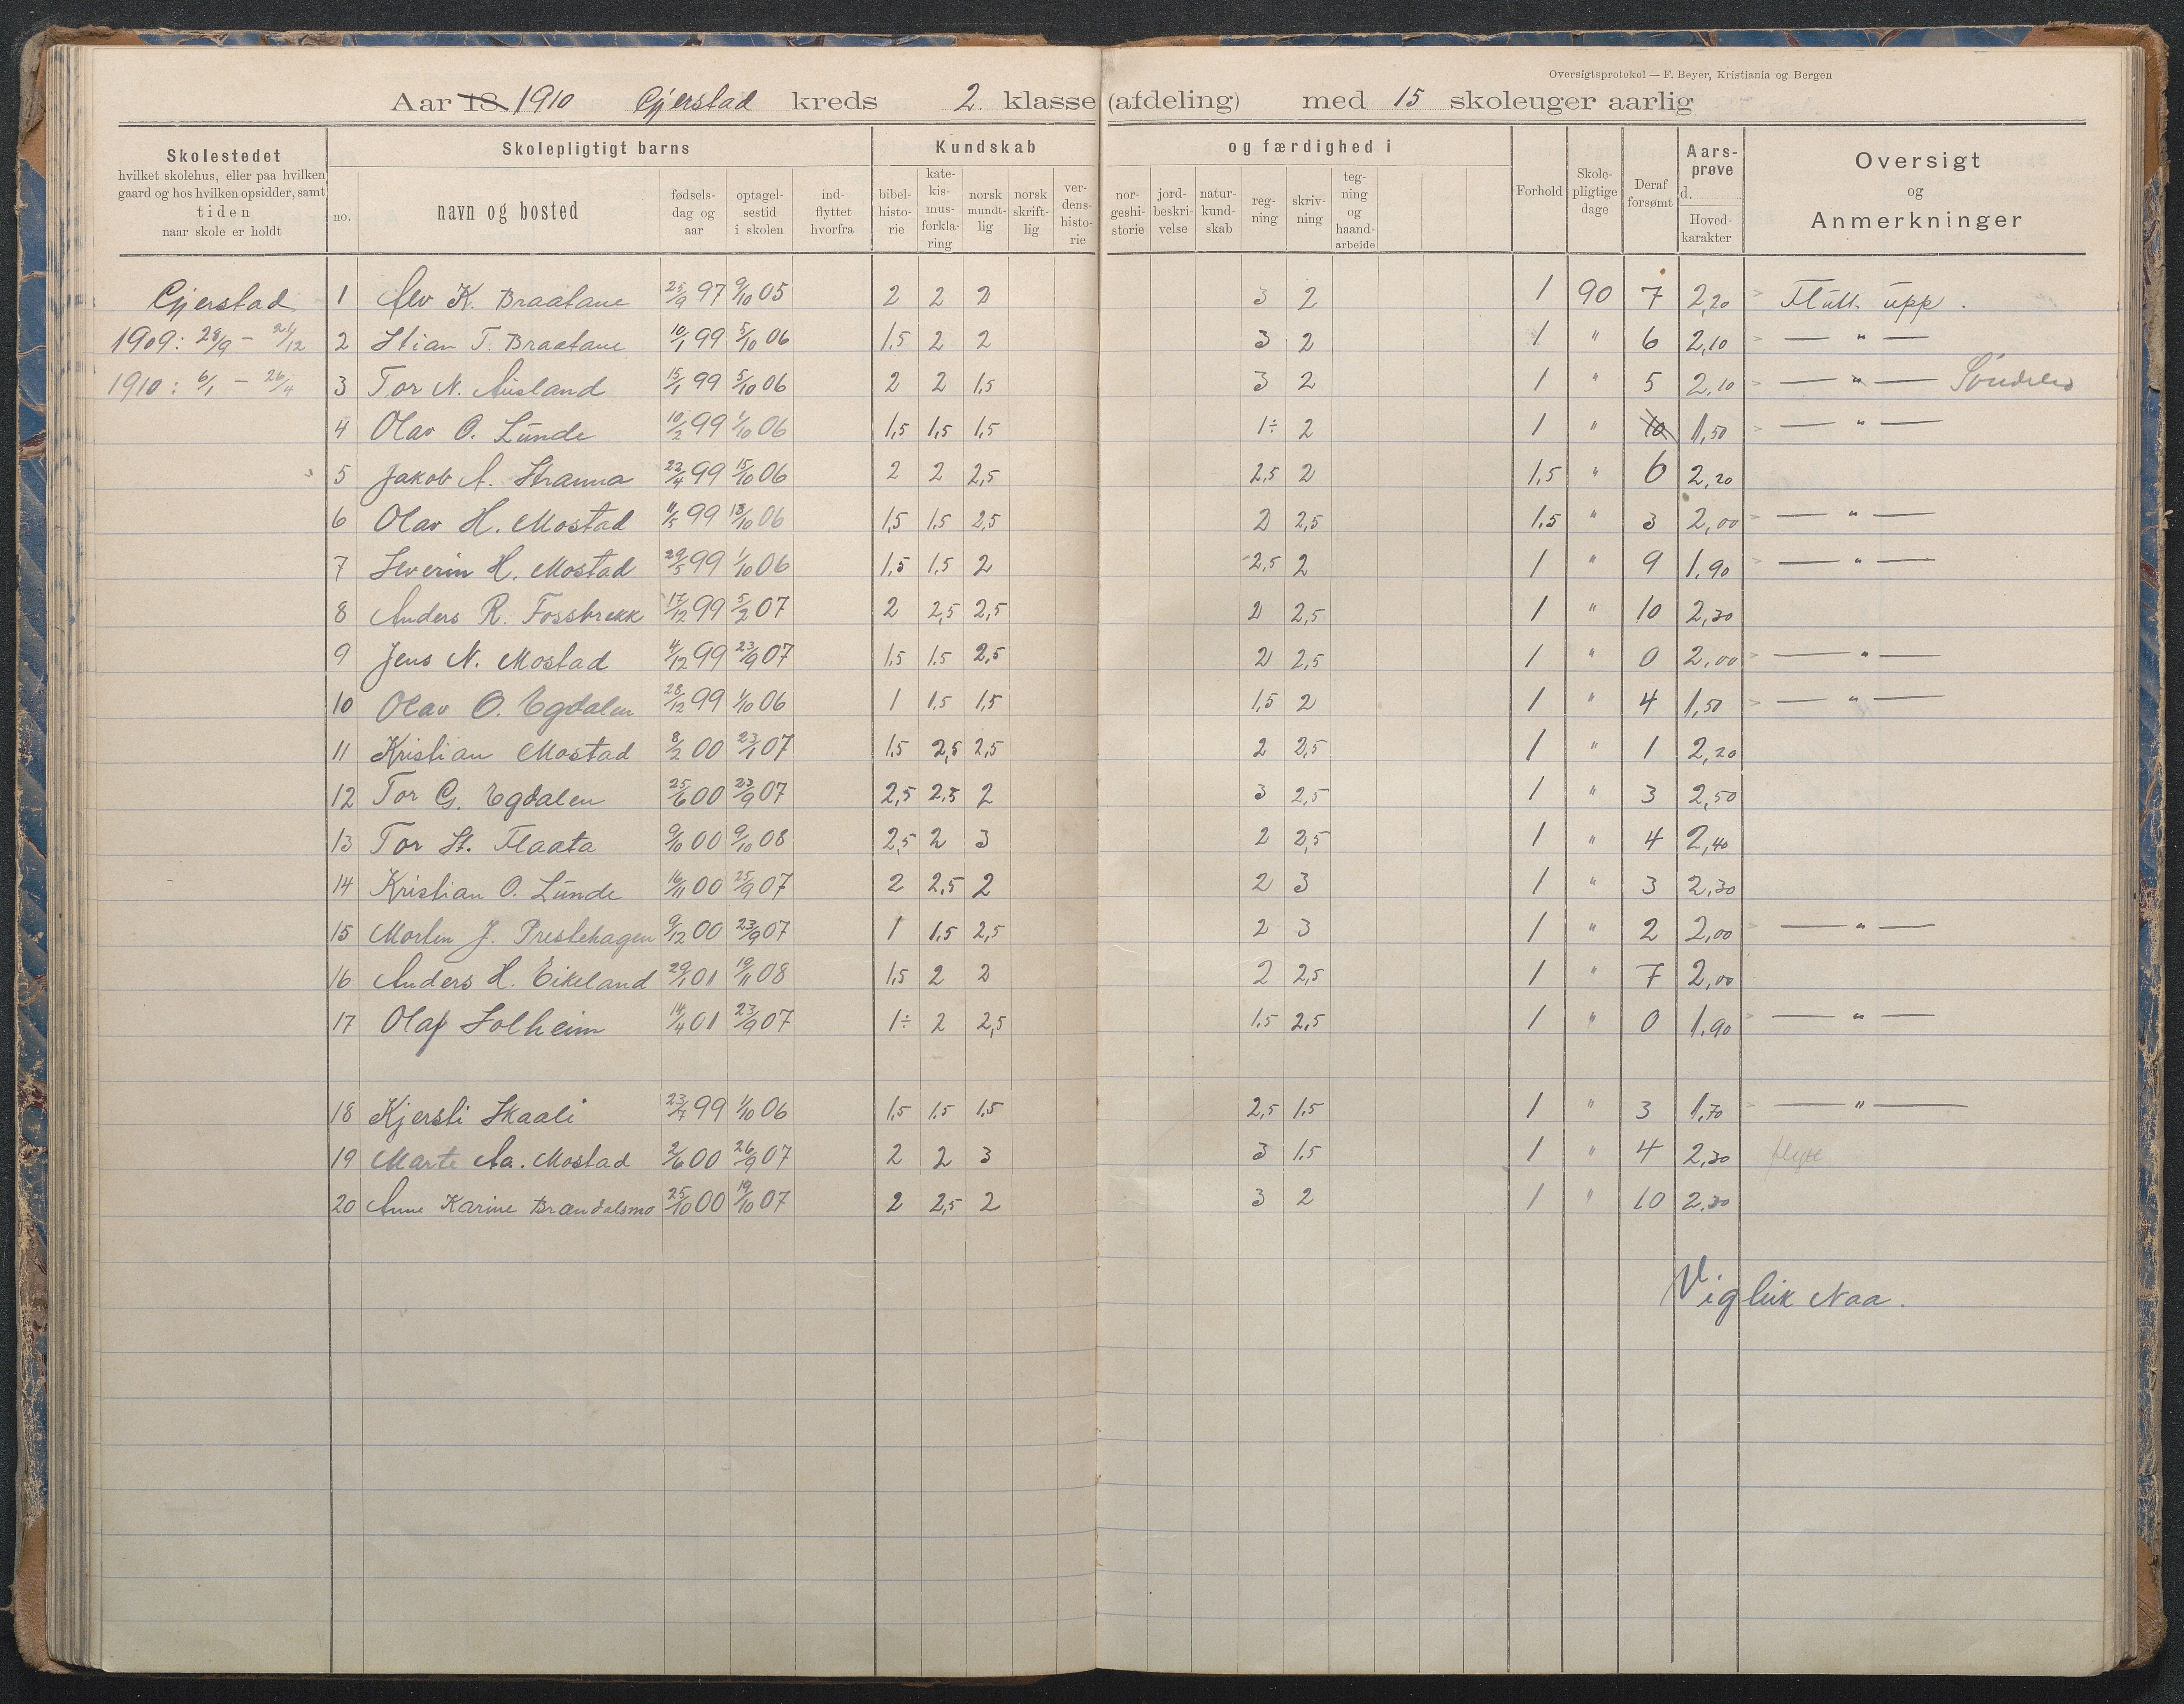 Oversigtsprotokol — F. Beyer, Kristiania og Bergen
Aar 18 1910 Gjerstad kreds 2. klasse (afdeling) med 15 skoleuger aarlig
Skolestedet hvilket skolehus, eller paa hvilken gaard og hos hvilken opsidder, samt tiden naar skole er holdt
Skolepligtigt barns
no. navn og bosted fødsels-dag og aar optagel-sestid i skolen ind-flyttet hvorfra
Kundskab og færdighed i
bibel-histo-rie kate-kis-mus-forkla-ring norsk mundt-lig norsk skrift-lig ver-dens-histo-rie nor-geshi-storie jord-beskri-velse natur-kund-skab reg-ning skriv-ning teg-ning og haand-arbeide
Forhold Skole-pligtige dage Deraf forsømt Aars-prøve d. Hoved-karakter
Oversigt og Anmerkninger
Gjerstad 1 Alv K. Braatane 25/9 97 9/10 05 2 2 2 3 2 1 90 7 2,20 Flutt upp.
1909: 28/9 - 21/12 2 Stian T. Braatane 10/1 99 5/10 06 1.5 2 2 3 2 1 " 6 2,10 — " —
1910: 6/1 - 26/4 3 Tor N. Ausland 15/1 99 5/10 06 2 2 1,5 3 2 1 " 5 2,10 — " — Söndeled
4 Olav O. Lunde 10/2 99 1/10 06 1,5 1,5 1,5 1÷ 2 1 " 10 1,50 — " —
5 Jakob A. Stranna 22/4 99 15/10 06 2 2 2,5 2,5 2 1,5 " 6 2,20
6 Olav H. Mostad 11/5 99 18/10 06 1,5 1,5 2,5 2 2,5 1.5 " 3 2,00 — " —
7 Severin H. Mostad 29/5 99 1/10 06 1,5 1,5 2 2,5 2 1 " 9 1,90 — " —
8 Anders R. Fossbrekk 17/12 99 5/2 07 2 2,5 2,5 2 2,5 1 " 10 2,30
9 Jens N. Mostad 4/12 99 23/9 07 1.5 1.5 2,5 2 2,5 1 " 0 2,00 — " —
10 Olav O. Egdalen 28/12 99 1/10 06 1 1,5 1,5 1,5 2 1 " 4 1,50 — " —
11 Kristian Mostad 8/2 00 23/1 07 1.5 2,5 2,5 2 2,5 1 " 1 2,20
12 Tor G. Egdalen 25/6 00 23/9 07 2,5 2,5 2 3 2,5 1 " 3 2,50
13 Tor St. Flaata 9/10 00 9/10 08 2,5 2 3 2 2,5 1 " 4 2,40
14 Kristian O. Lunde 16/11 00 25/9 07 2 2,5 2 2 3 1 " 3 2,30
15 Morten J. Prestehagen 9/12 00 23/9 07 1 1,5 2,5 2 3 1 " 2 2,00 — " —
16 Anders H. Eikeland 29/1 01 19/11 08 1,5 2 2 2 2,5 1 " 7 2,00
17 Olaf Solheim 14/4 01 23/9 07 1÷ 2 2,5 1.5 2,5 1 " 0 1,90 — " —
18 Kjersti Skaali 23/7 99 1/10 06 1,5 1.5 1.5 2,5 1.5 1 " 3 1,70 — " —
19 Marte Aa. Mostad 2/6 00 26/9 07 2 2 3 3 1.5 1 " 4 2,30
20 Anne Karine Brændalsmo 25/10 00 19/10 07 2 2,5 2 3 2 1 " 10 2.30
Vigleik Naa.